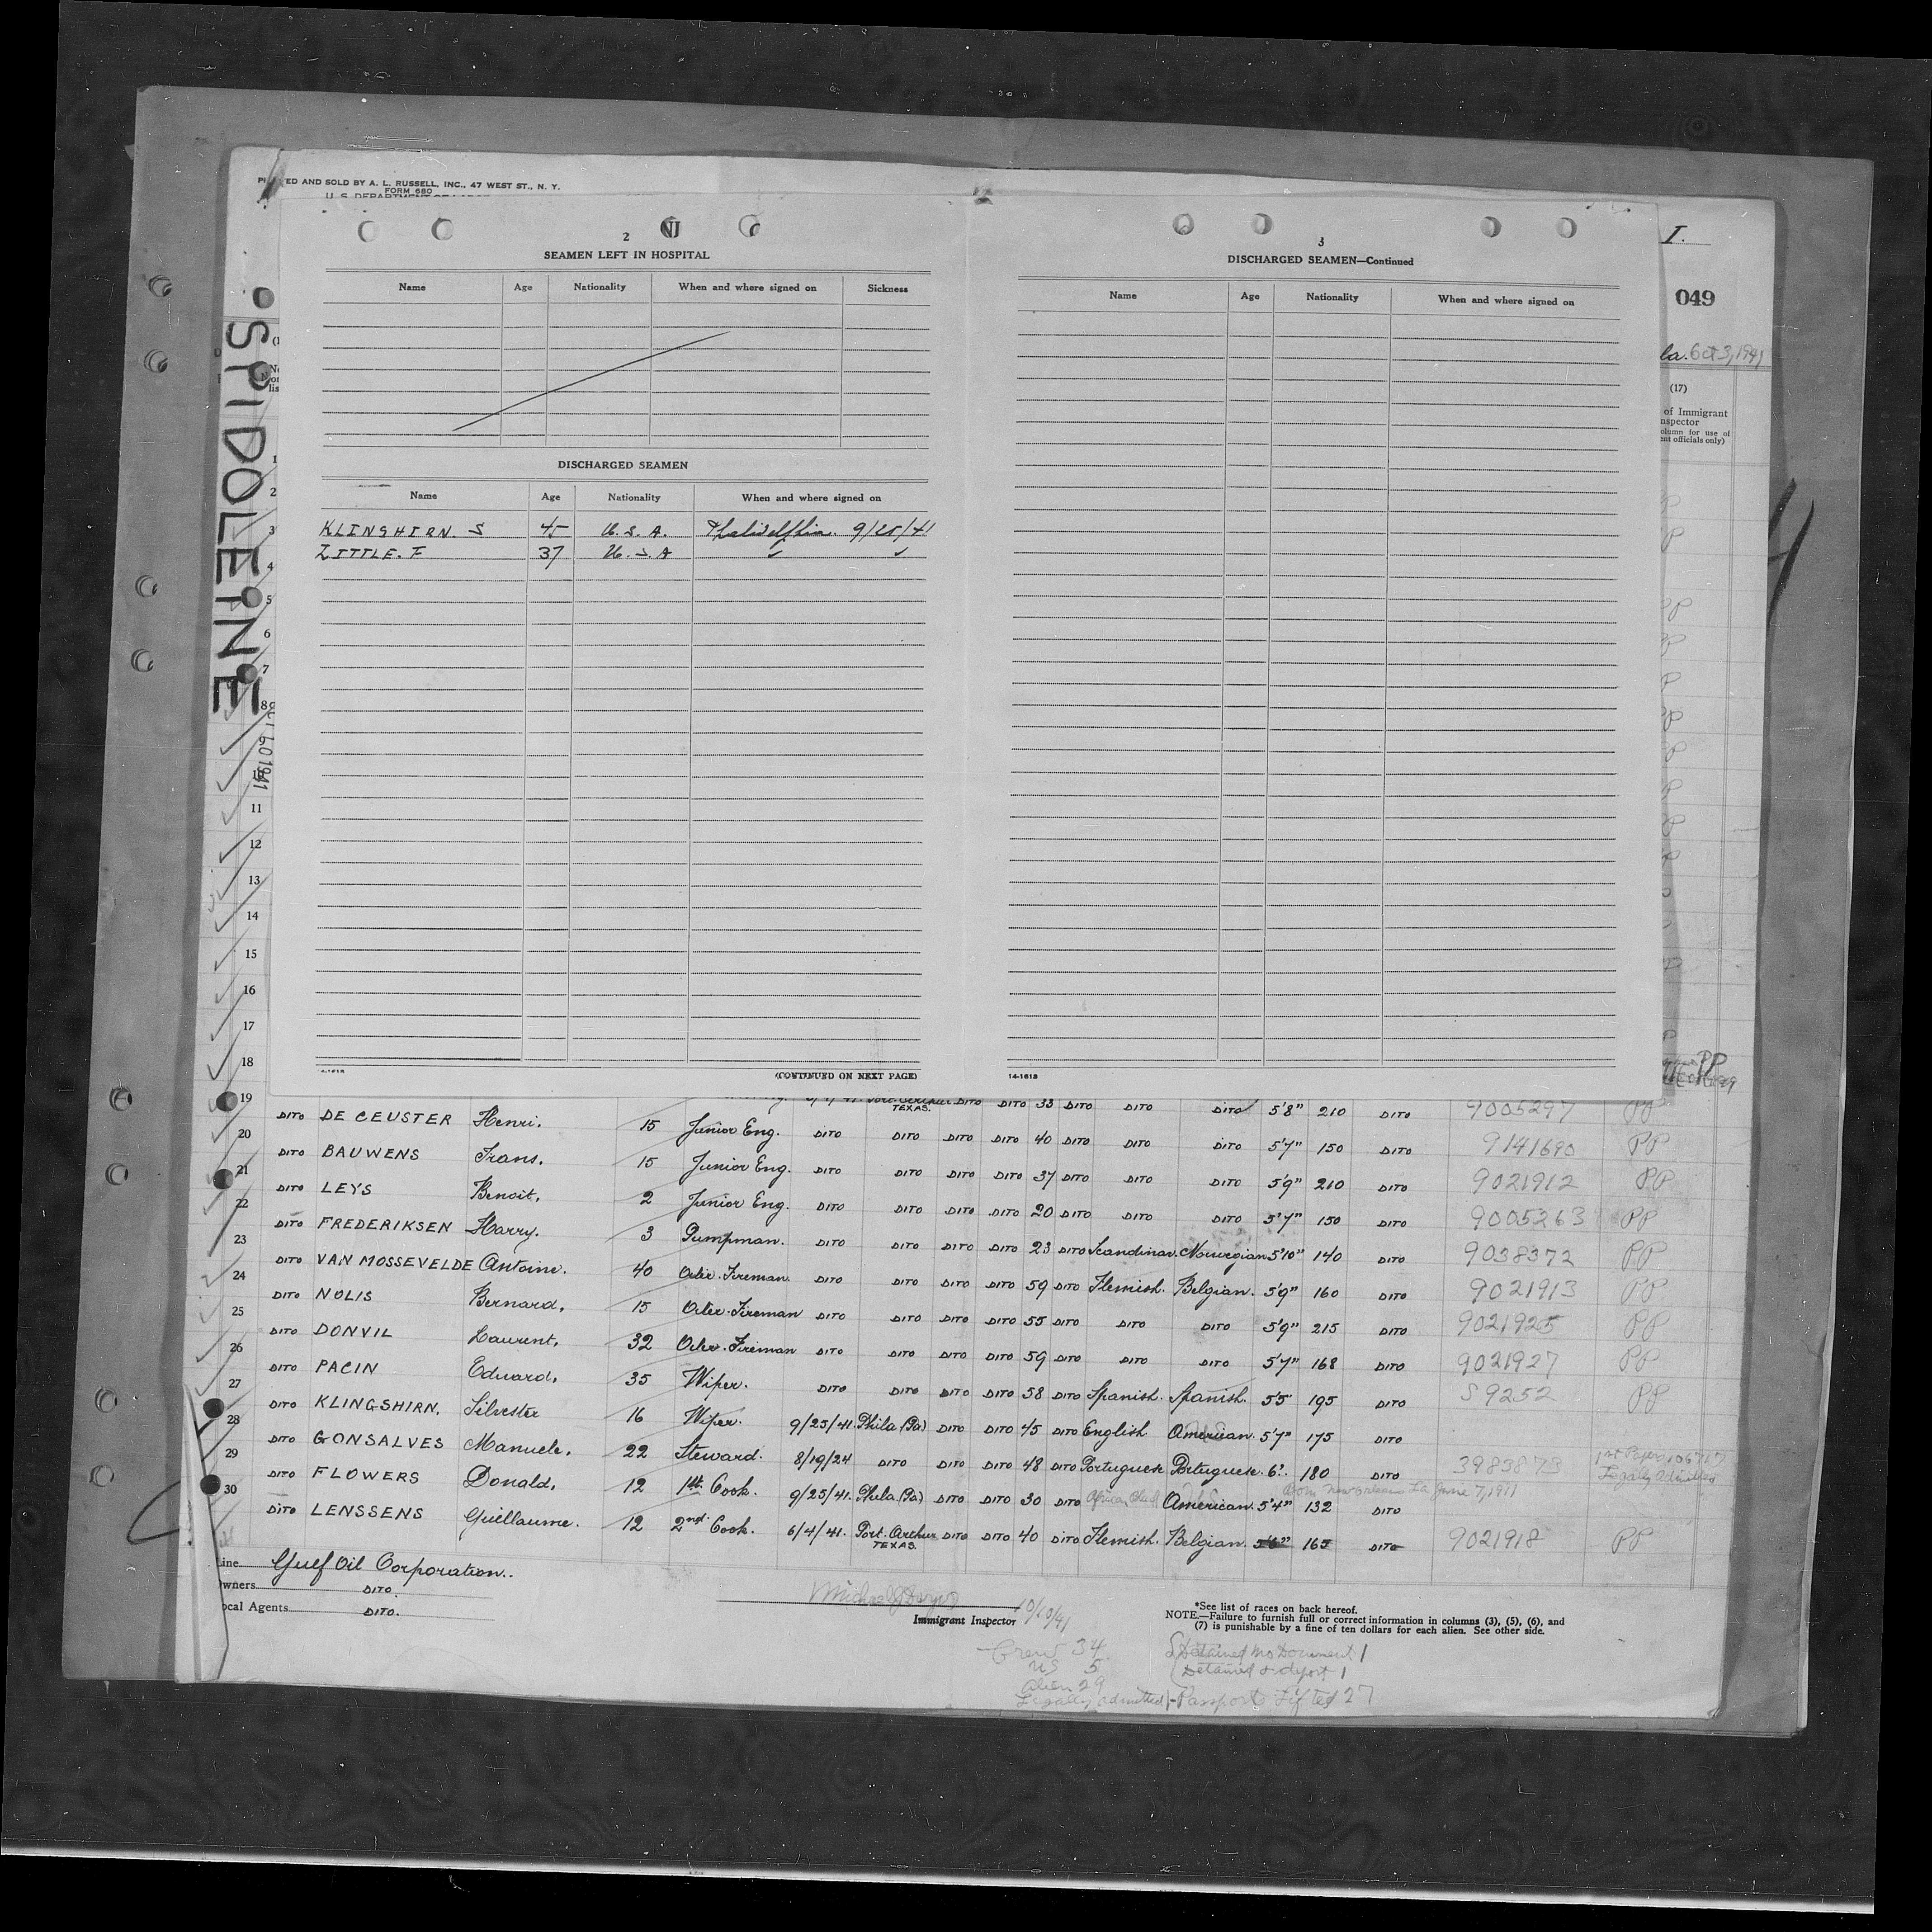 PRINTED AND SOLD BY A. L. RUSSELL, INC., 47 WEST ST., N. Y.
FORM 680
U. S. DEPARTMENT
I.
049
Oct 3, 1941
(17)
of Immigrant
nspector
olumn for use of
ent officials only)
SPIDOLEINE
2
SEAMEN LEFT IN HOSPITAL
Name Age Nationality When and where signed on Sickness
DISCHARGED SEAMEN
Name Age Nationality When and where signed on
KLINGHIRN. S 45 U.S.A. 9/25/41
LITTLE. F 37 U.S.A ✓ ✓
(CONTINUED ON NEXT PAGE)
3
DISCHARGED SEAMEN—Continued
Name Age Nationality When and where signed on
14-1618
1
2
3
4
5
6
7
8
11
12
13
14
15
16
17
18
19
TEXAS.
DITO DE CEUSTER Henri. 15 Junior Eng. DITO DITO DITO DITO 40 DITO DITO DITO 5'7" 150 DITO 9141690 PP
20
DITO BAUWENS Frans. 15 Junior Eng. DITO DITO DITO DITO 37 DITO DITO DITO 5'9" 210 DITO 9021912 PP
21
DITO LEYS Benoit. 2 Junior Eng. DITO DITO DITO DITO 20 DITO DITO DITO 5'7" 150 DITO 9005263 PP
22
DITO FREDERIKSEN Harry. 3 Pumpman. DITO DITO DITO DITO 23 DITO Scandinav. Norwegian 5'10" 140 DITO 9038372 PP
23
DITO VAN MOSSEVELDE Antoine. 40 Oiler.Fireman. DITO DITO DITO DITO 59 DITO Flemish. Belgian. 5'9" 160 DITO 9021913 PP
24
DITO NOLIS Bernard. 15 Oiler.Fireman DITO DITO DITO DITO 55 DITO DITO DITO 5'9" 215 DITO 9021925 PP
25
DITO DONVIL Laurent. 32 Oiler.Fireman DITO DITO DITO DITO 59 DITO DITO DITO 5'7" 168 DITO 9021927 PP
26
DITO PACIN Edward. 35 Wiper. DITO DITO DITO DITO 58 DITO Spanish. Spanish. 5'5 195 DITO S 9252 PP
27
DITO KLINGSHIRN. Silvester 16 Wiper. 9/25/41. Phila (Pa) DITO DITO 45 DITO English American. 5'7" 175 DITO
28
DITO GONSALVES Manuele. 22 Steward. 8/19/24 DITO DITO DITO 48 DITO Portuguese Portuguese. 6'. 180 DITO 3983873
Legally admitted
29
Born New Orleans La June 7, 1911
DITO FLOWERS Donald. 12 1st Cook. 9/25/41. Phila (Pa) DITO DITO 30 DITO American. 5'4" 132 DITO
30
DITO LENSSENS Guillaume. 12 2nd Cook. 6/4/41. Port. Arthur TEXAS. DITO DITO 40 DITO Flemish. Belgian. 5'6" 165 DITO 9021918 PP
Line Gulf Oil Corporation..
wners DITO.
ocal Agents DITO.
10/10/41
Immigrant Inspector
*See list of races on back hereof.
NOTE.—Failure to furnish full or correct information in columns (3), (5), (6), and
(7) is punishable by a fine of ten dollars for each alien. See other side.
Crew 34
US 5
Alien 29
Legally admitted 1 - Passports Lifted 27
Detained No Document 1
Detained & deport 1